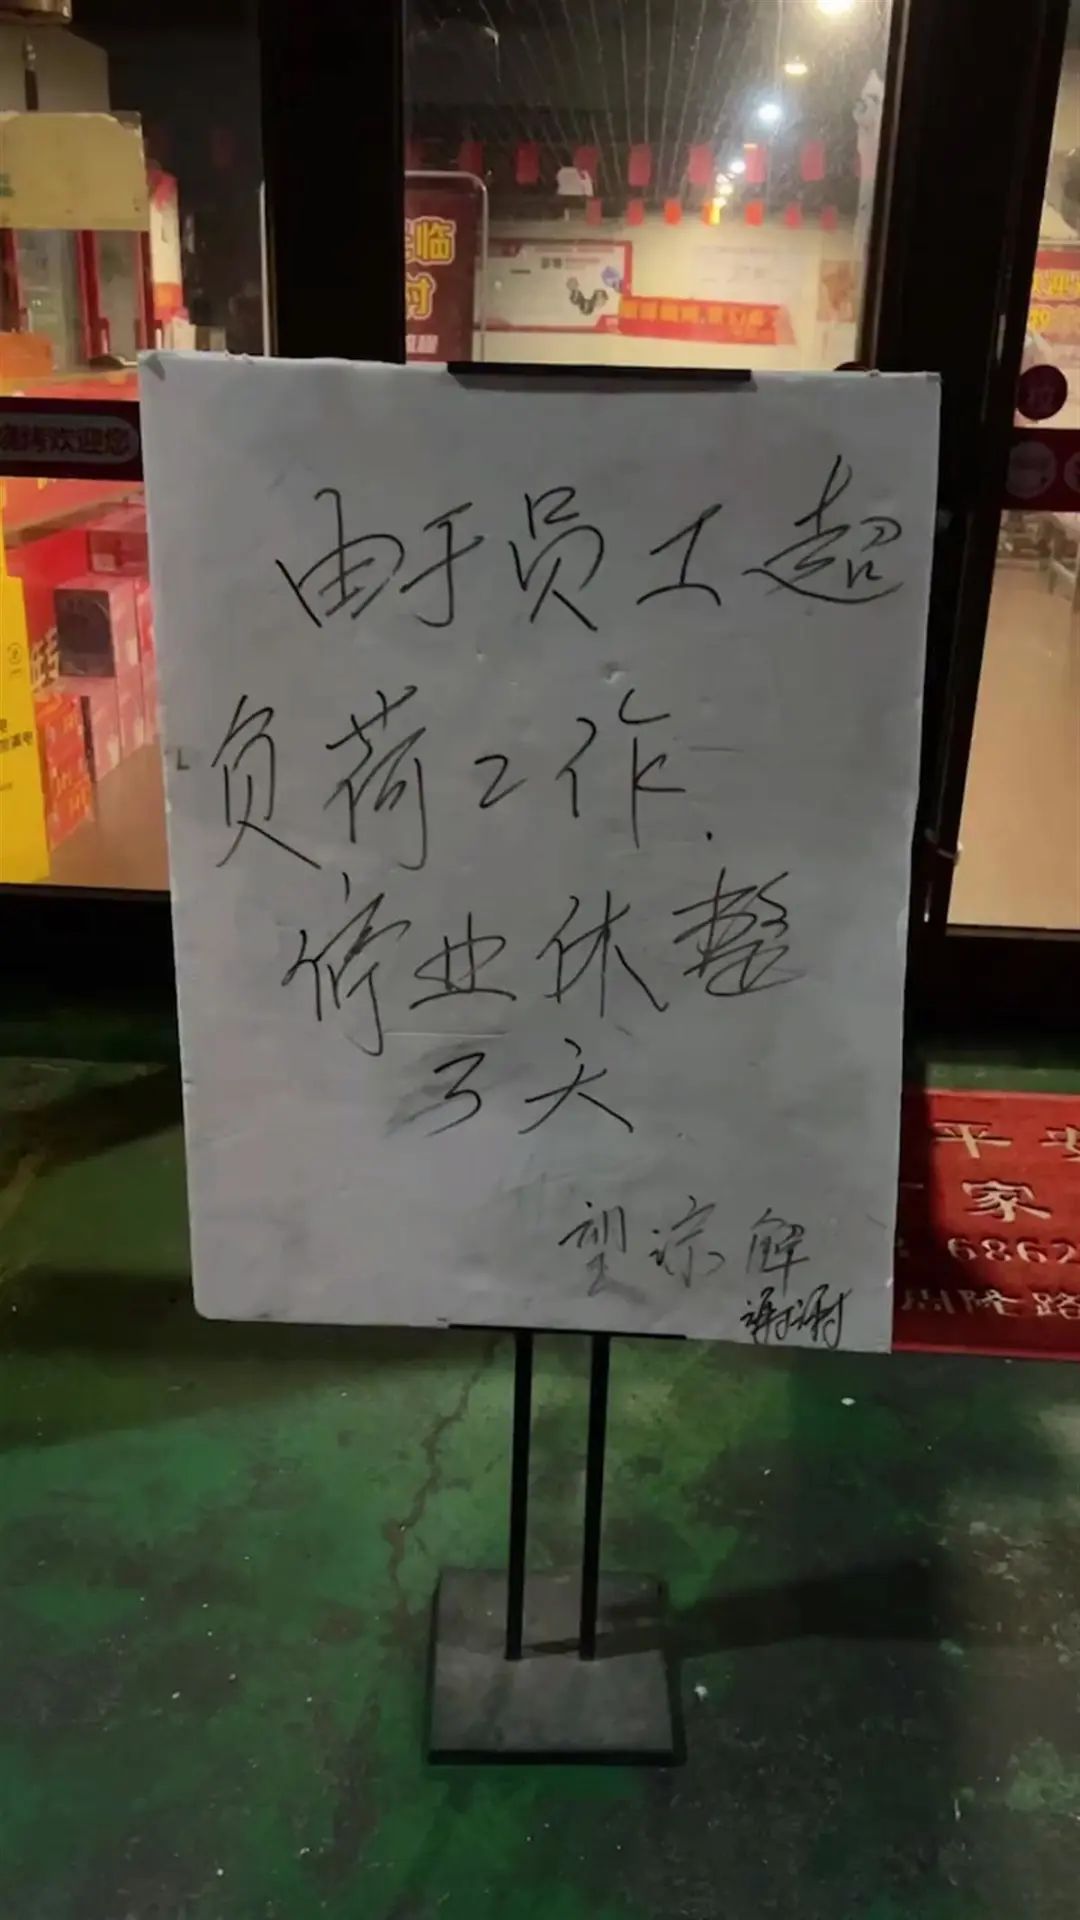 临
时
烤欢迎您
由于员工超
负荷工作.
停业休整
3天
望谅解
谢谢
平安
家
6862
路